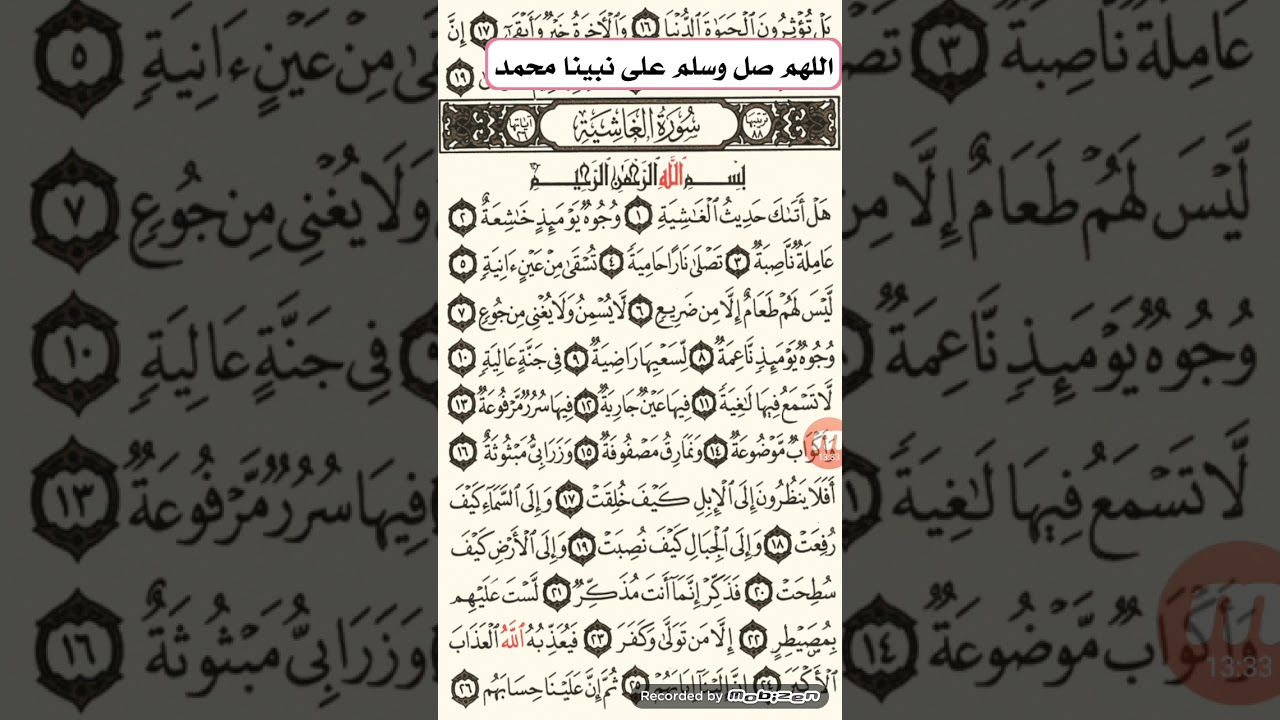 بَلْ تُؤْثِرُونَ ٱلْحَيَوٰةَ ٱلدُّنْيَا ١٦ وَٱلْءَاخِرَةُ خَيْرٌ وَأَبْقَىٰٓ ١٧ إِنَّ
اللهم صل وسلم على نبينا محمد
١٩
ترتيبها ٨٨ سُورَةُ الغَاشِيَةِ آياتها ٢٦
بِسْمِ ٱللَّهِ ٱلرَّحْمَٰنِ ٱلرَّحِيمِ
هَلْ أَتَىٰكَ حَدِيثُ ٱلْغَٰشِيَةِ ١ وُجُوهٌ يَوْمَئِذٍ خَٰشِعَةٌ ٢
عَامِلَةٌ نَّاصِبَةٌ ٣ تَصْلَىٰ نَارًا حَامِيَةً ٤ تُسْقَىٰ مِنْ عَيْنٍ ءَانِيَةٍ ٥
لَّيْسَ لَهُمْ طَعَامٌ إِلَّا مِن ضَرِيعٍ ٦ لَّا يُسْمِنُ وَلَا يُغْنِى مِن جُوعٍ ٧
وُجُوهٌ يَوْمَئِذٍ نَّاعِمَةٌ ٨ لِّسَعْيِهَا رَاضِيَةٌ ٩ فِى جَنَّةٍ عَالِيَةٍ ١٠
لَّا تَسْمَعُ فِيهَا لَٰغِيَةً ١١ فِيهَا عَيْنٌ جَارِيَةٌ ١٢ فِيهَا سُرُرٌ مَّرْفُوعَةٌ ١٣
وَأَكْوَابٌ مَّوْضُوعَةٌ ١٤ وَنَمَارِقُ مَصْفُوفَةٌ ١٥ وَزَرَابِىُّ مَبْثُوثَةٌ ١٦
13:33
أَفَلَا يَنظُرُونَ إِلَى ٱلْإِبِلِ كَيْفَ خُلِقَتْ ١٧ وَإِلَى ٱلسَّمَآءِ كَيْفَ
رُفِعَتْ ١٨ وَإِلَى ٱلْجِبَالِ كَيْفَ نُصِبَتْ ١٩ وَإِلَى ٱلْأَرْضِ كَيْفَ
سُطِحَتْ ٢٠ فَذَكِّرْ إِنَّمَآ أَنتَ مُذَكِّرٌ ٢١ لَّسْتَ عَلَيْهِم
بِمُصَيْطِرٍ ٢٢ إِلَّا مَن تَوَلَّىٰ وَكَفَرَ ٢٣ فَيُعَذِّبُهُ ٱللَّهُ ٱلْعَذَابَ
ٱلْأَكْبَرَ ٢٤ إِنَّ إِلَيْنَآ إِيَابَهُمْ ٢٥ ثُمَّ إِنَّ عَلَيْنَا حِسَابَهُم ٢٦
Recorded by Mobizen